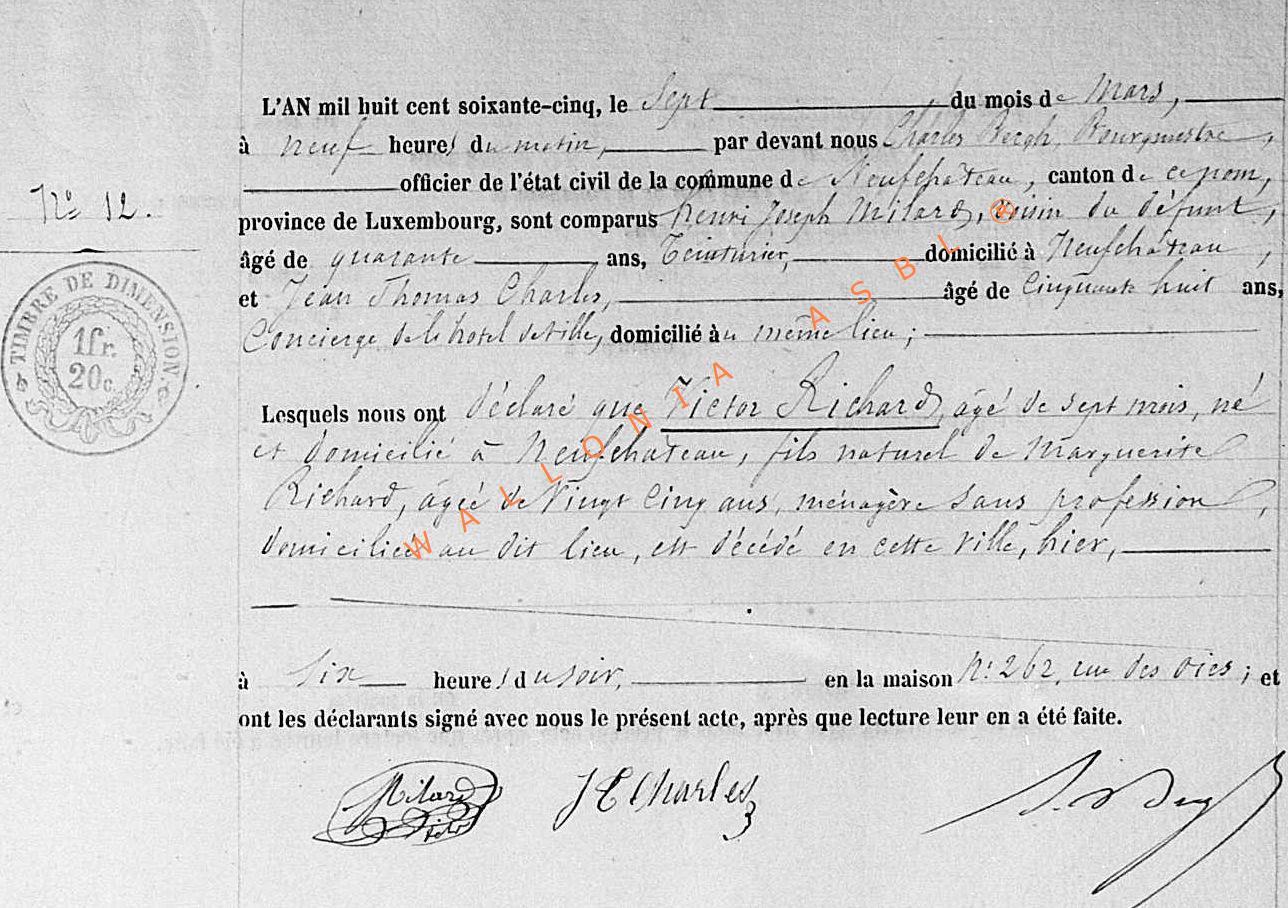 L'AN mil huit cent soixante-cinq, le Sept du mois de Mars,
à neuf heures du matin, par devant nous Charles Bergh, Bourgmestre,
officier de l'état civil de la commune de Neufchâteau, canton de ce nom,
N° 12.
province de Luxembourg, sont comparus Henri Joseph Milard, voisin du défunt,
âgé de quarante ans, Teinturier, domicilié à Neufchâteau,
et Jean Thomas Charles, âgé de Cinquante huit ans,
Concierge de le hotel de ville, domicilié au même lieu;
TIMBRE DE DIMENSION
1fr.
20c.
Lesquels nous ont déclaré que Victor Richard, âgé de sept mois, né
et domicilié à Neufchâteau, fils naturel de Marguerite
Richard, âgée de Vingt Cinq ans, ménagère sans profession,
domiciliée au dit lieu, est décédé en cette ville, hier,
à Six heures du soir, en la maison N° 262, rue des oies; et
ont les déclarants signé avec nous le présent acte, après que lecture leur en a été faite.
Milard
J T Charles
WALLONIA ASBL ®